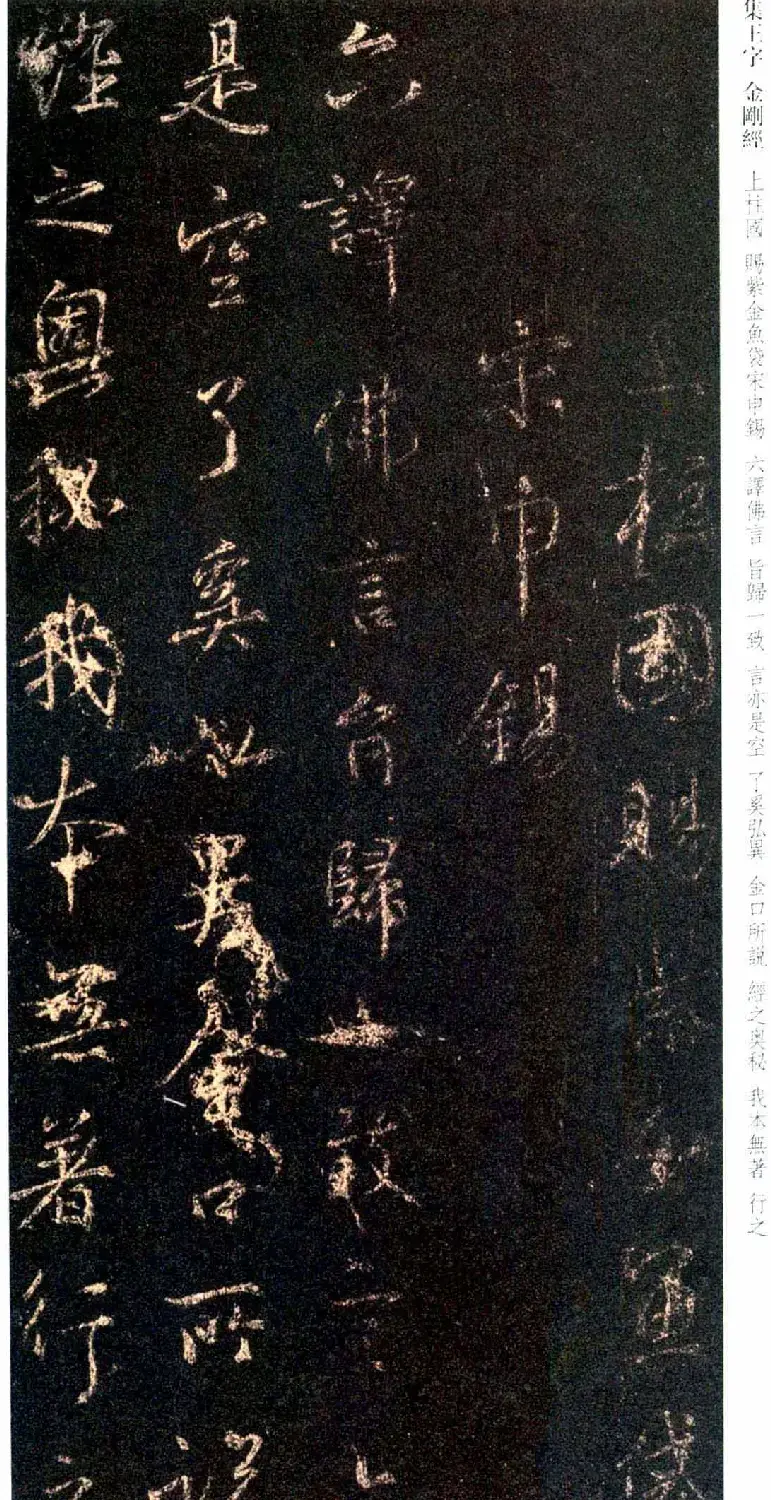 集王字 金剛經 上柱國 賜紫金魚袋宋申錫 六譯佛言 旨歸一致 言亦是空 了奚弘異 金口所説 經之奥秘 我本無著 行之
上柱國賜紫金魚袋
宋申錫
六譯佛言旨歸一致言亦
是空了奚弘異金口所説
經之奥秘我本無著行之